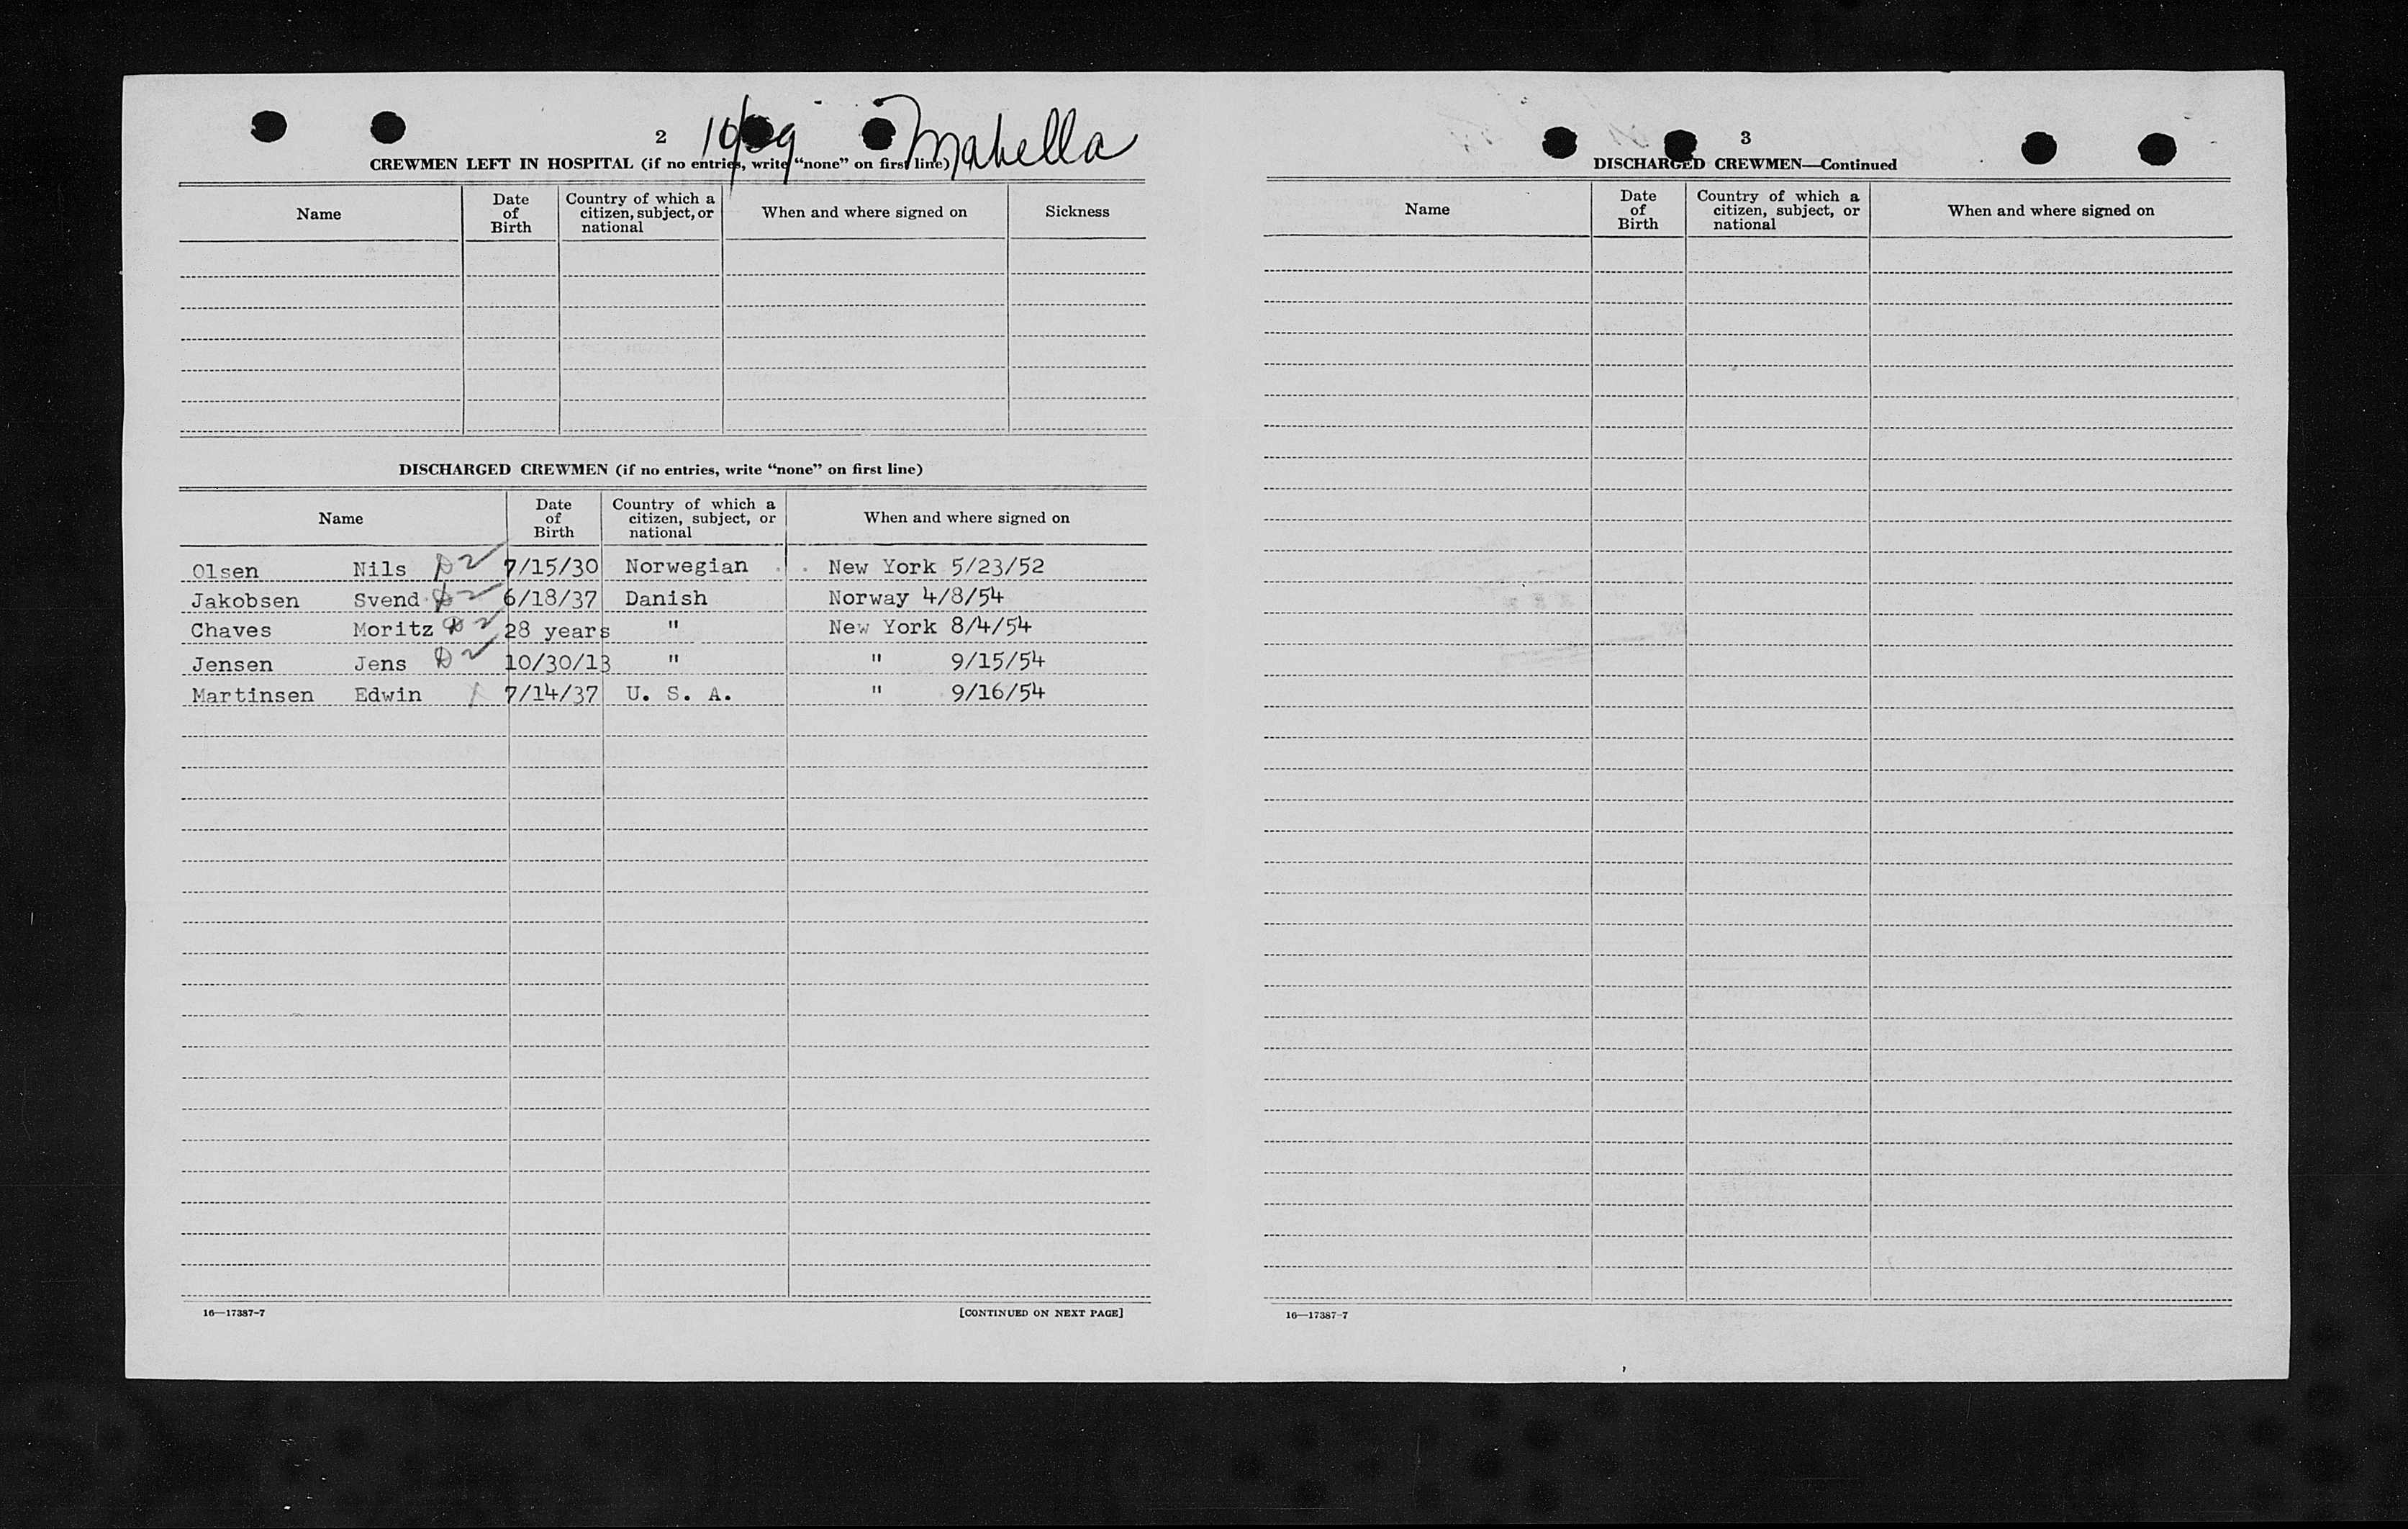 2
Mabella
CREWMEN LEFT IN HOSPITAL (if no entries, write “none” on first line)
Name
Date of Birth
Country of which a citizen, subject, or national
When and where signed on
Sickness
DISCHARGED CREWMEN (if no entries, write “none” on first line)
Name
Date of Birth
Country of which a citizen, subject, or national
When and where signed on
Olsen Nils D2 7/15/30 Norwegian New York 5/23/52
Jakobsen Svend D2 6/18/37 Danish Norway 4/8/54
Chaves Moritz D2 28 years " New York 8/4/54
Jensen Jens D2 10/30/13 " " 9/15/54
Martinsen Edwin 7/14/37 U. S. A. " 9/16/54
16—17387-7
[CONTINUED ON NEXT PAGE]
3
DISCHARGED CREWMEN—Continued
Name
Date of Birth
Country of which a citizen, subject, or national
When and where signed on
16—17387-7